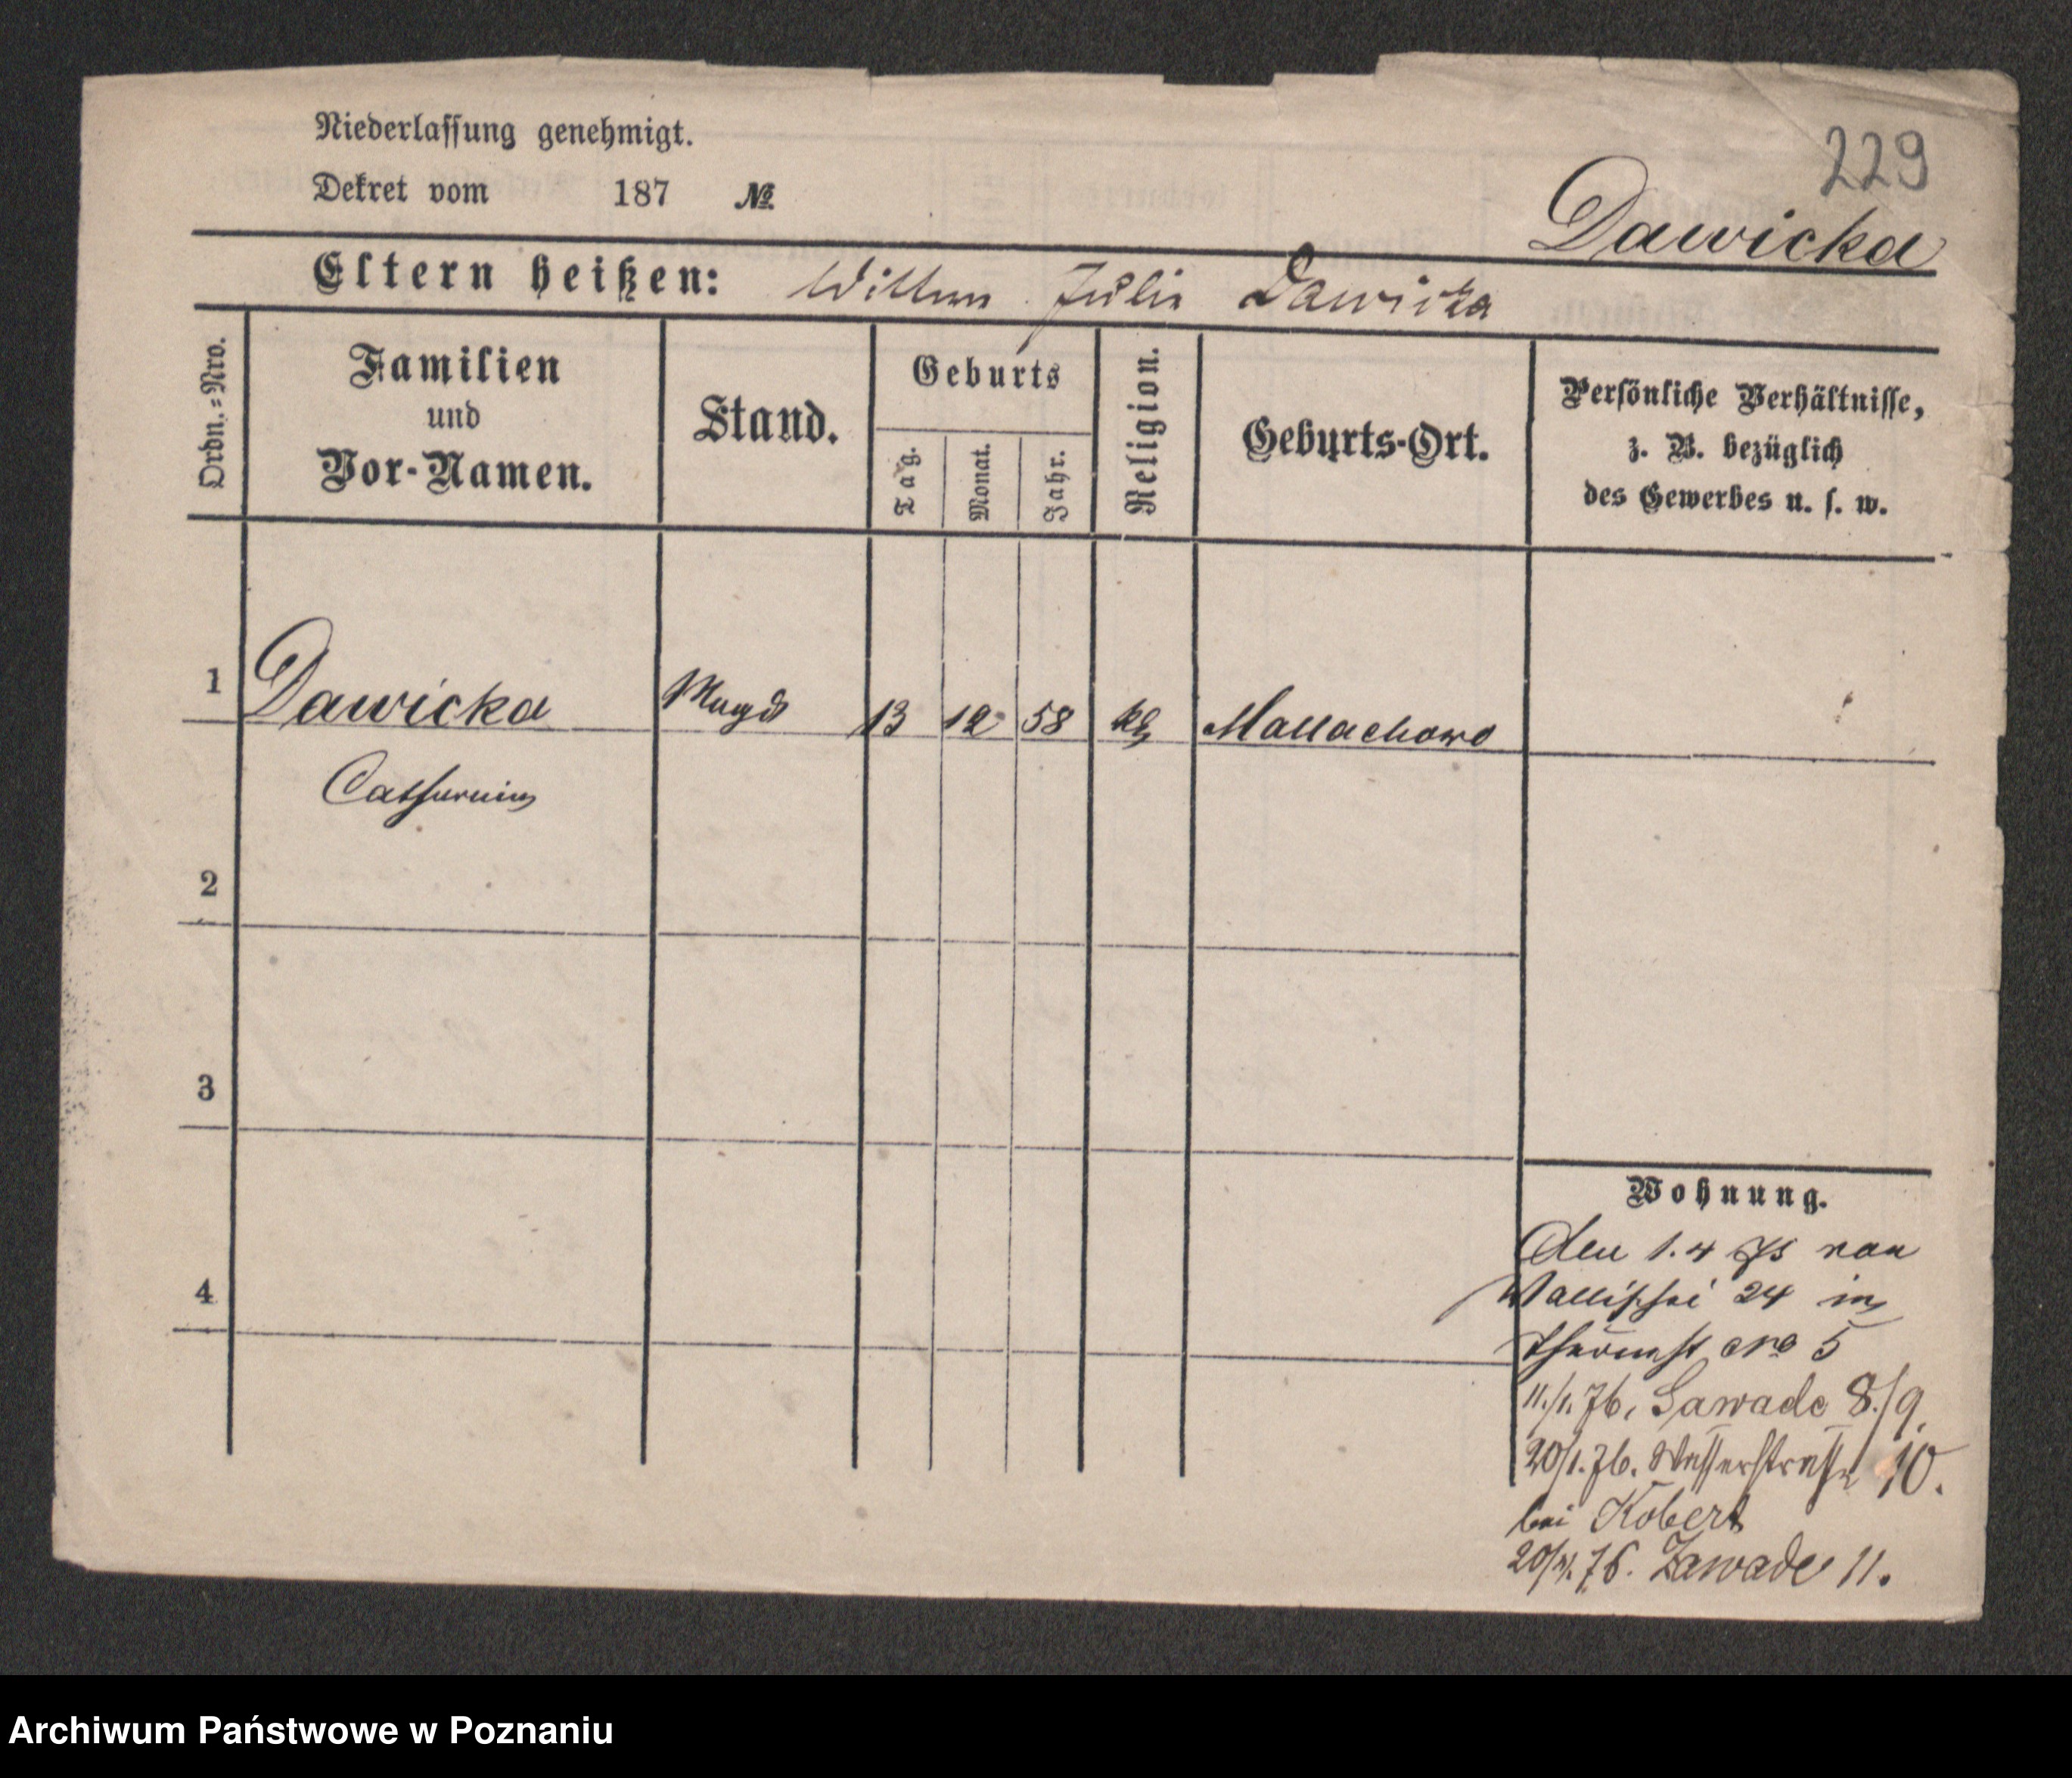 229
Niederlassung genehmigt.
Dekret vom 187 №
Dawicka
Eltern heißen: Wittwe Julie Dawicka
Ordn.-Nro.
Familien
und
Vor-Namen.
Stand.
Geburts
Tag.
Monat.
Jahr.
Religion.
Geburts-Ort.
Persönliche Verhältnisse,
z. B. bezüglich
des Gewerbes u. s. w.
1 Dawicka Magd 13 12 58 kth Mallachowo
Catharina
2
3
4
Wohnung.
Den 1.4 75 von
Wallischei 24 in
No 5
11./1. 76. Sawade 8./9.
20/1. 76. Wasserstrasse 10.
bei Kobert
76. Zawade 11.
Archiwum Państwowe w Poznaniu